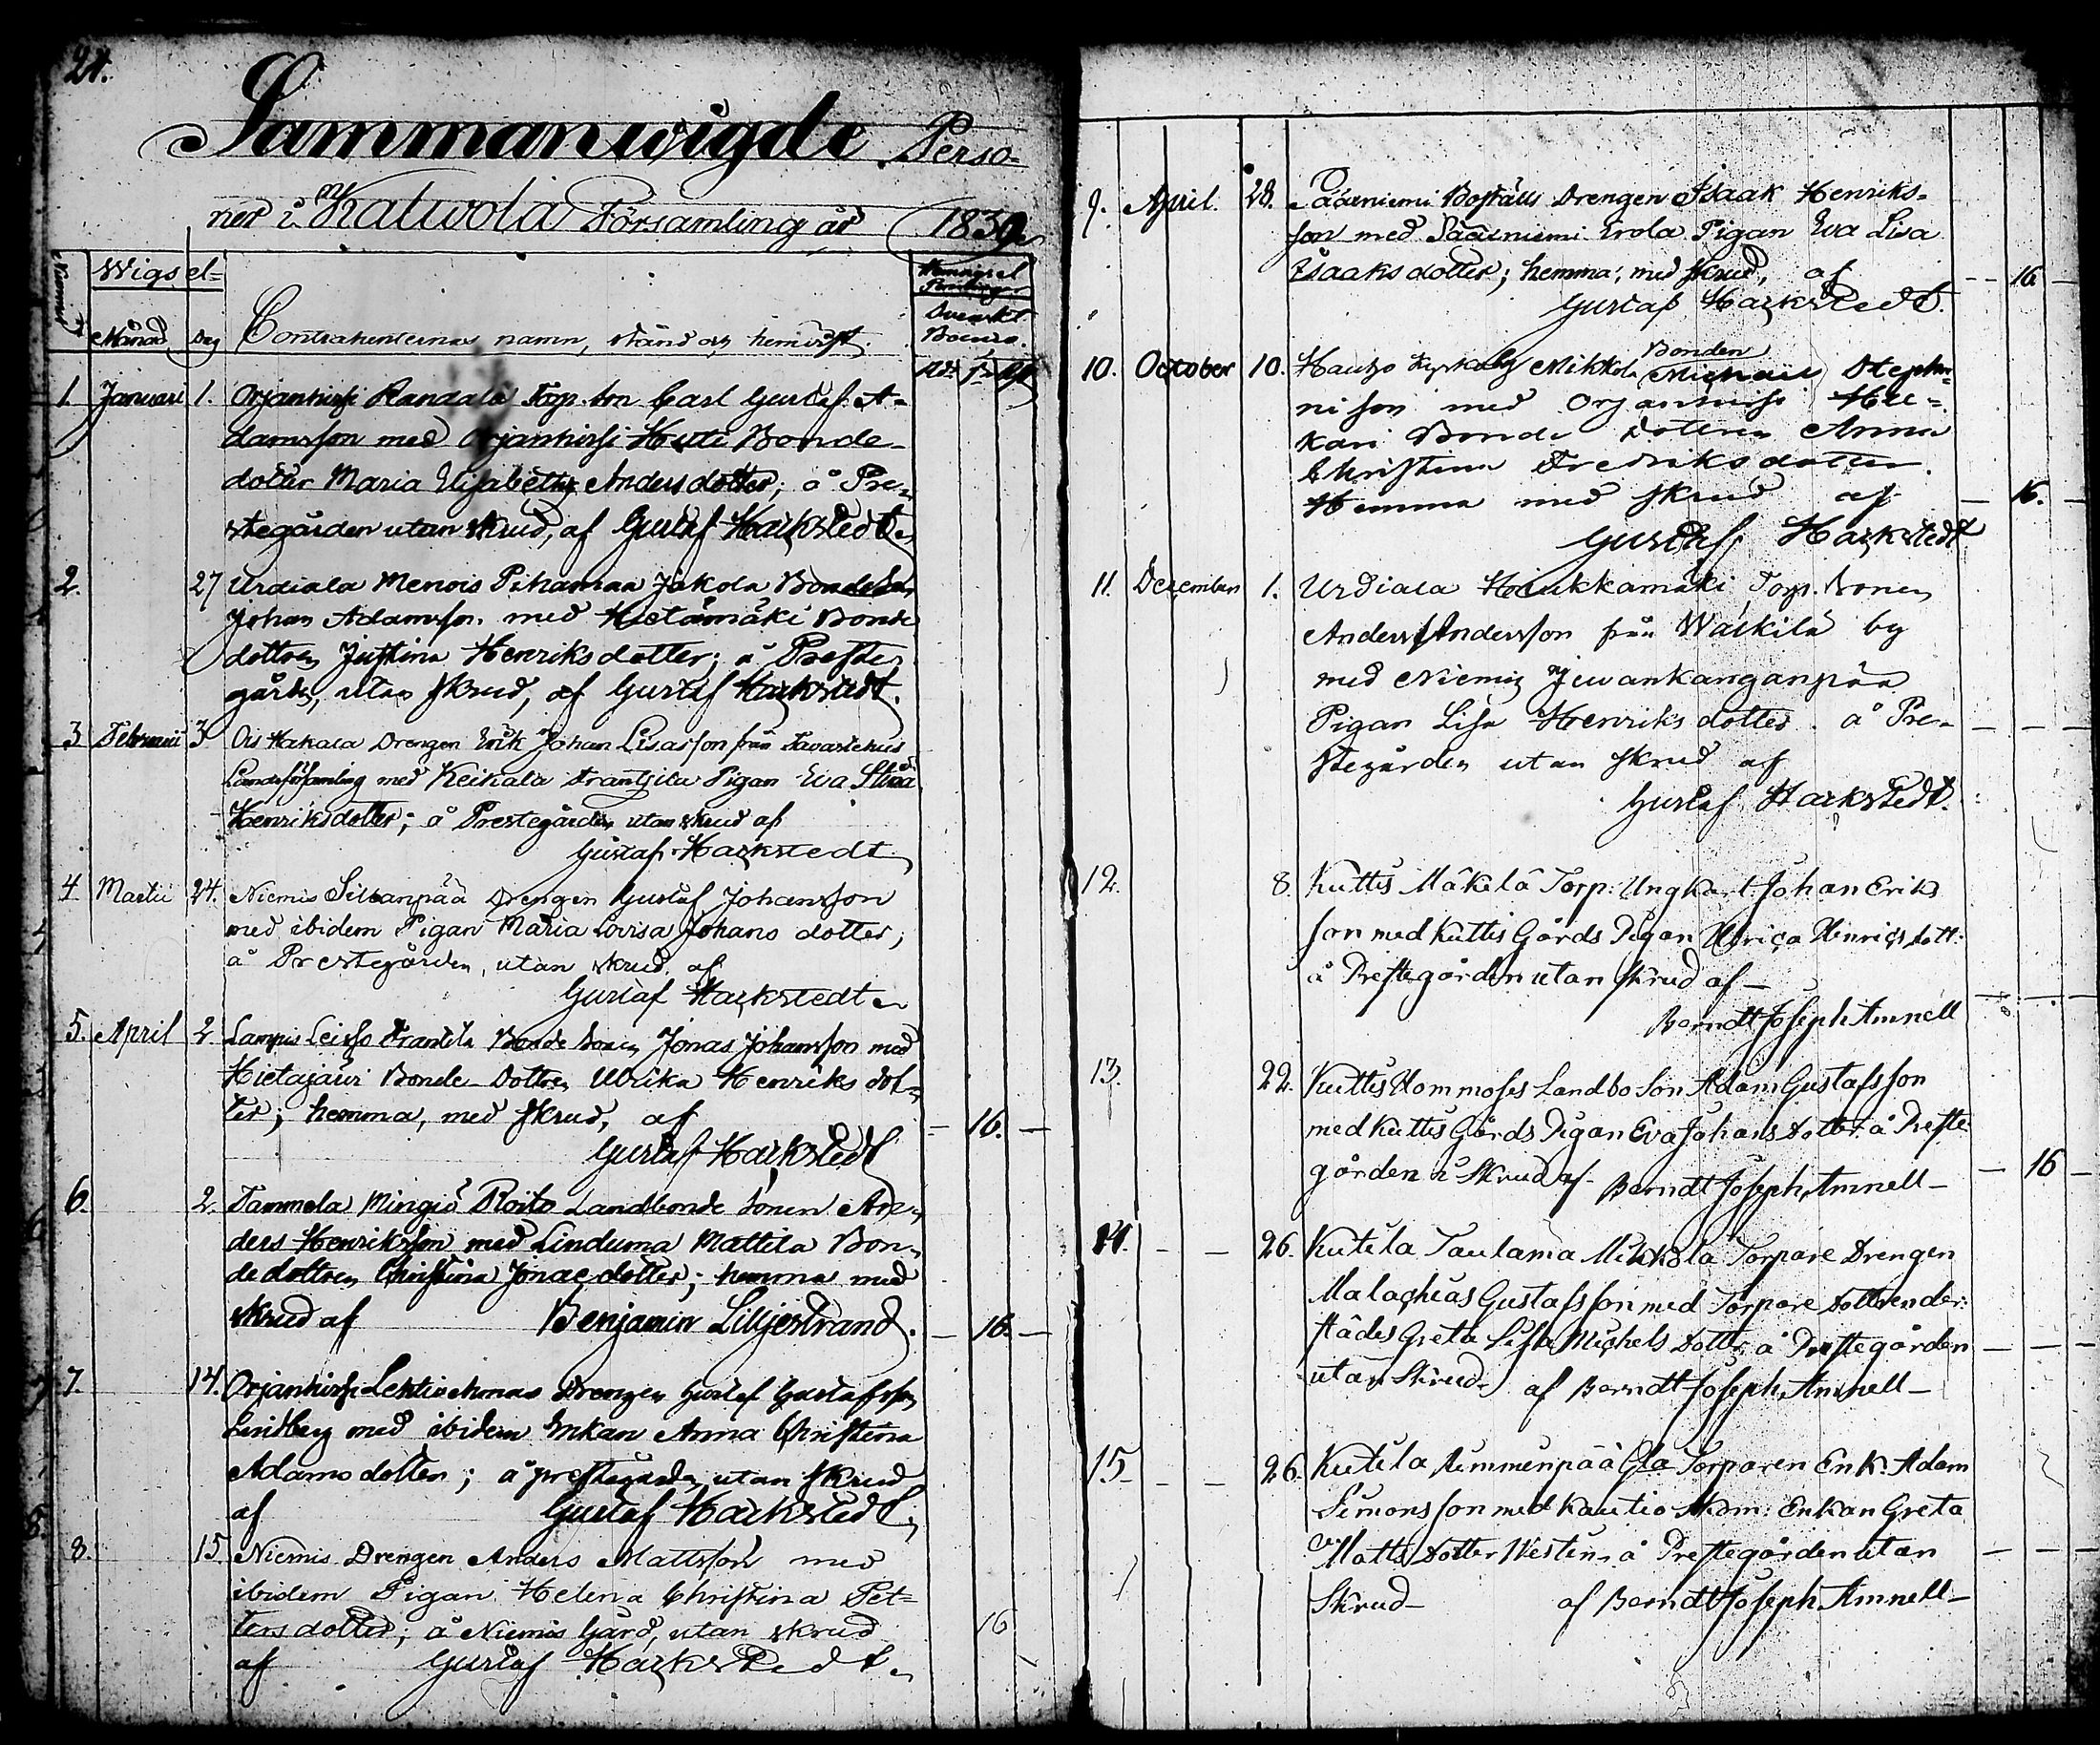 24.
Sammanwigde Perso-
ner i Kalwola Församling år 1839.
Wigsel-
Månad Dag Contrahenternas namn, stånd och hemvist.
1. Januari 1. Orjanhirsi Randala Torp. son Carl Gustaf A-
damsson med Orjanhirsi Huti Bonde-
dotter Maria Elisabeth Andersdotter; å Pre-
stegården utan skrud, af Gustaf Harkstedt.
2. 27 Urdiala Menois Pihamaa Jakola Bondeson
Johan Adamsson med Hietamäki Bonde
dottren Justina Henriksdotter; å Preste-
gården, utan skrud, af Gustaf Harkstedt.
3. Februarii 3 Ois Hakala Drengen Erik Johan Lisasson från Tavastehus
Landsförsamling med Keikala Frantsila Pigan Eva Stina
Henriksdotter; å Prestegården utan skrud af
Gustaf Harkstedt
4. Martii 24. Niemis Sillanpää Drengen Gustaf Johansson
med ibidem Pigan Maria Lovisa Johans dotter;
å Prestegården, utan skrud, af
Gustaf Harkstedt
5. April 2. Lampis Leiso Frantila Bonde Sonen Jonas Johansson med
Hietajärvi Bonde-Dottren Ulrika Henriks dot-
ter; hemma, med skrud, af - 16. -
Gustaf Harkstedt
6. 2. Tammela Mingiö Roito Landbonde Sonen An-
ders Henriksson med Linduma Mattila Bon-
de dottren Christina Jonaedotter; hemma med
skrud af Benjamin Liljestrand. - 16. -
7. 14. Orjanhirsi Lehtis Drengen Gustaf Gustafsson
Lindberg med ibidem Enkan Anna Christina
Adams dotter; å prestegården utan skrud
af Gustaf Harkstedt
8. 15. Niemis Drengen Anders Mattsson med
ibidem Pigan Helena Christina Pet-
tersdotter; å Niemis Gård, utan skrud 16
af Gustaf Harkstedt
9. April. 28. Pääruiemi Boställs Drengen Isaak Henriks-
son med Erola Pigan Eva Lisa
Isaaksdotter; hemma; med skrud, af - 16 -
Gustaf Harkstedt.
Bonden
10. October 10. Hauho Mikkola Michael Stepha-
ni son med Orjanhirsi Hu-
kari Bonde dottren Anna
Christina Fredriksdotter.
Hemma med skrud af - 16. -
Gustaf Harkstedt
11. December 1. Urdiala Houkkamäki Torp. Sonen
Anders Andersson från Warkila by
med Niemis Juvankanganpää
Pigan Lisa Henriksdotter. å Pre-
stegården utan skrud af
Gustaf Harkstedt.
12. 8. Kuttis Mäkilä Torp: Ungkarl Johan Eriks
son med Kuttis Gårds Pigan Ulrica Henrics dott:
å Prestegården utan skrud af -
Berndt Joseph Amnell
13. 22. Kuttis Uommoses Landbo Son Adam Gustafsson
med Kuttis Gårds Pigan Eva Johans Dotter å Preste
gården i Skrud af - Berndt Joseph Amnell - - 16 -
14. - - 26. Kutila Taulama Mikkola Torpare Drengen
Malachias Gustafsson med Torpare Dottren der-
städes Greta Lisa Michels Dotter å Prestegården
utan Skrud - af Berndt Joseph Amnell -
15 - - 26. Kutila Rimmenpää Gla Torparen Enk: Adam
Simonsson med Kautio Skom: Enkan Greta
Matts Dotter Westin å Prestegården utan
Skrud - af Berndt Joseph Amnell -